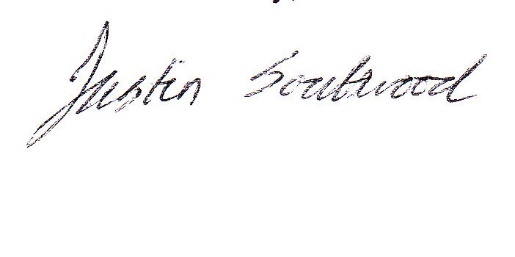 Justin Soulwood